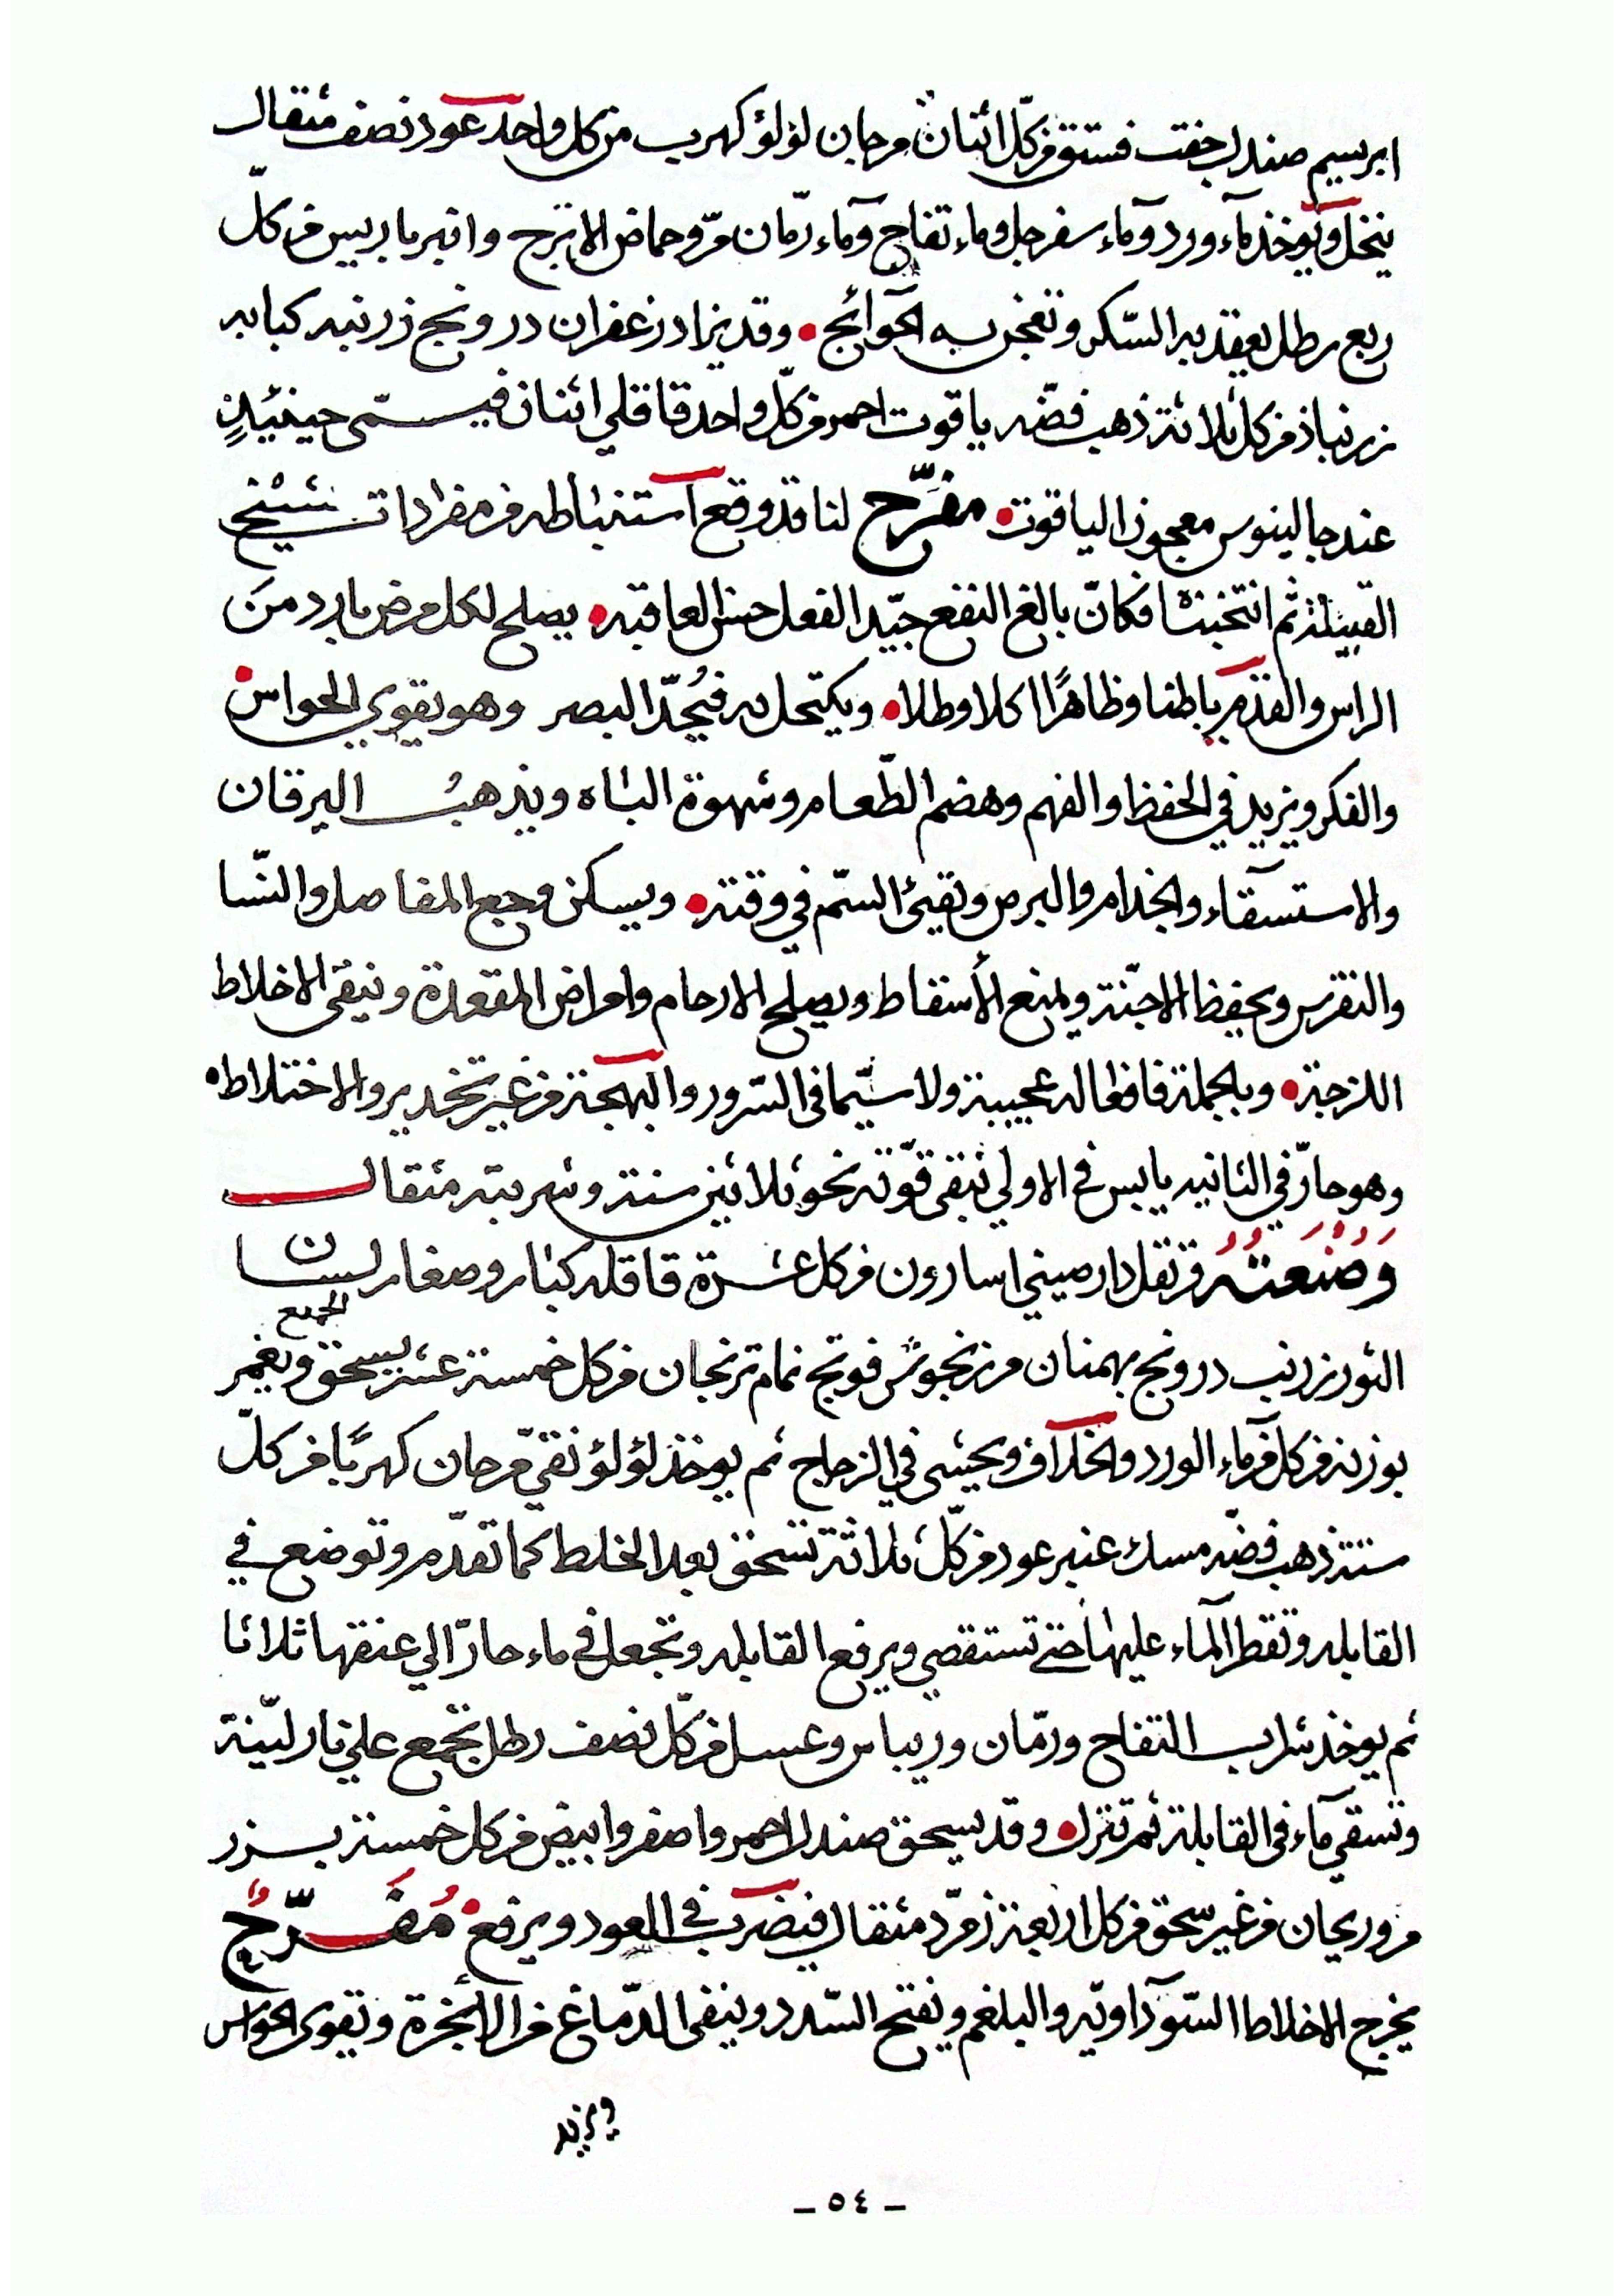 ابريسيم صندل جفت فستق من كلّ اثنان مرجان لؤلؤ كهرب من كل واحد عود نصف مثقال
ينخل ويوخذ مآء ورد ومآء سفرجل وماء تفاح ومآء رمّان مرّ وحماض الاترج وانبرباريس من كلّ
ربع رطل يعقد به السّكر وتعجن به الحوآئج • وقد يزاد زعفران درونج زرنبه كبابه
زرنباذ من كل ثلاثة ذهب فضّه ياقوت احمر من كلّ واحد قاقلي اثنان فيسمّى حينئيذٍ
عند جالينوس معجون الياقوت • مفرّح لنا قد وقع آستنباطه من مفردات شيخ
القبيلة ثم انتخبته فكانّ بالغ النفع جيّد الفعل حسن العاقبه • يصلح لكل مرض بارد منَ
الراس والقدم باطنا وظاهرًا اكلا وطلا • ويكتحل به فيُحدّ البصر وهو يقوي الحواس •
والفكر ويزيد في الحفظ والفهم وهضم الطّعام وشهوة الباه ويذهب اليرقان
والاستسقآء والجذام والبرص وتقيئ السّم في وقته • ويسكن وجع المفاصل والنّسا
والنقرس ويحفظ الاجنّة ويمنع الأسقاط ويصلح الارحام وامراض المقعدة وينقى الاخلاط
اللزجة • وبالجملة فافعاله عجيبة ولا سيّما في السّرور والبهجة من غير تخدير والاختلاط •
وهو حارّ في الثانيه يابس في الاولي تبقى قوّته نحو ثلاثين سنة وشربته مثقال
وَصُنعتُهُ قرنفل دارصيني اسارون من كل عشرة قاقله كبار وصغار لسان
الثور زرنب درونج بهمنان مرزنجوش فوتنج نمام ترنجان من كل خمسة عشر يسحق الجميع ويغمر
بوزنه من كل من مآء الورد والخلآف ويحشى في الزجاج ثم يوخذ لؤلؤ نقيّ مرجان كهربًا من كلّ
ستة ذهب فضّه مسك عنبر عود من كلّ ثلاثة تسحق بعد الخلط كما تقدّم وتوضع في
القابله وتقطر المآء عليها حتى تستقصي ويرفع القابله وتجعل في ماء حارّ الي عنقها ثلاثا
ثم يوخذ شراب التفاح ورمّان وريباس وعسل من كلّ نصف رطل تجمع علي نار ليّنة
وتسقي مآء في القابلة ثم تنزل • وقد يسحق صندل احمر واصفر وابيض من كل خمسة بزر
مرو ريحان من غير سحق من كل اربعة زمرّد مثقال فيضرب في العود ويرفع • مُفَرّحٌ
يخرج الاخلاط السّودآاويّه والبلغم ويفتح السّدد وينقى الدّماغ من الأبخرة وتقوى الحواس
ويزيد
– ٥٤ –